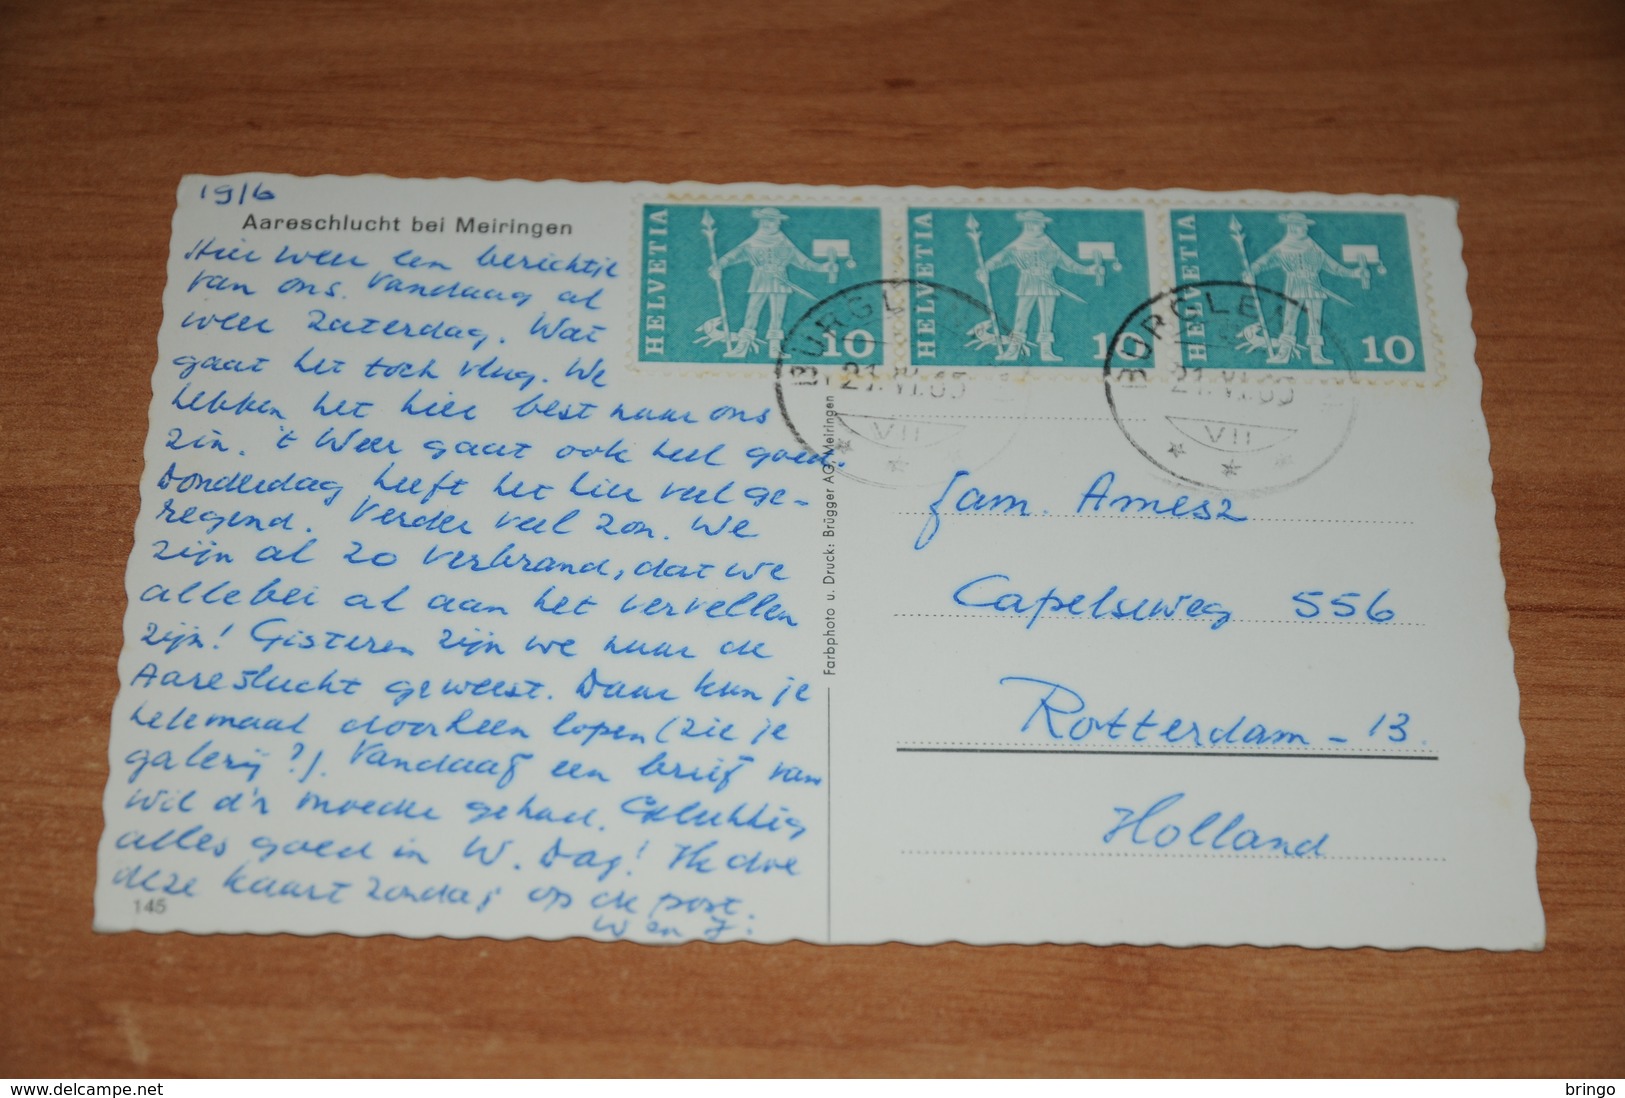 19/6
Aareschlucht bei Meiringen
Hier weer een berichtje
van ons. Vandaag al
weer Zaterdag. Wat
gaat het toch vlug. We
hebben het hier best naar ons
zin. 't Weer gaat ook heel goed.
Donderdag heeft het hier veel ge-
regend. Verder veel zon. We
zijn al zo verbrand, dat we
allebei al aan het vervellen
zijn! Gisteren zijn we naar de
Aareslucht geweest. Daar kun je
helemaal doorheen lopen (zie je
galerij?). Vandaag een brief van
Wil d'r moeder gehad. Gelukkig
alles goed in W. Dag! Ik doe
deze kaart zondag op de post.
W en J.
145
HELVETIA 10
HELVETIA 10
HELVETIA 10
BÜRGLEN
21.VI.65
VII
BÜRGLEN
21.VI.65
VII
Farbphoto u. Druck: Brügger AG, Meiringen
fam. Amesz
Capelseweg 556
Rotterdam - 13.
Holland
www.delcampe.net
bringo